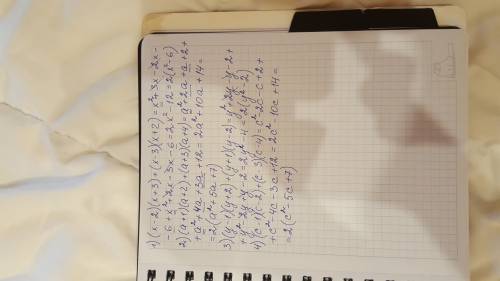 1) (x-2)(x+3)+(x-3)(x+2)=x²+3x-2x-
-6+x²+2x-3x-6=2x²-12=2(x²-6)
2) (a+1)(a+2)+(a+3)(a+4)=a²+2a+a+2+
+a²+4a+3a+12=2a²+10a+14=
=2(a²+5a+7)
3) (y-1)(y+2)+(y+1)(y-2)=y²+2y-y-2+
+y²-2y+y-2=2y²-4=2(y²-2)
4) (c-1)(c-2)+(c-3)(c-4)=c²-2c-c+2+
+c²-4c-3c+12=2c²-10c+14=
=2(c²-5c+7)